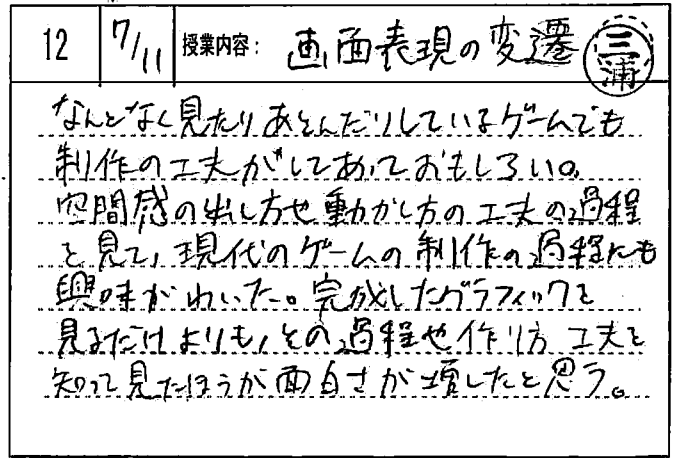 12 7/11 授業内容: 画面表現の変遷 三浦
なんとなく見たりあそんだりしているゲームでも
制作の工夫がしてあっておもしろい。
空間感の出し方や動かし方の工夫の過程
を見て、現代のゲームの制作の過程にも
興味がわいた。完成したグラフィックを
見るだけよりも、その過程や作り方 工夫を
知って見たほうが面白さが増したと思う。